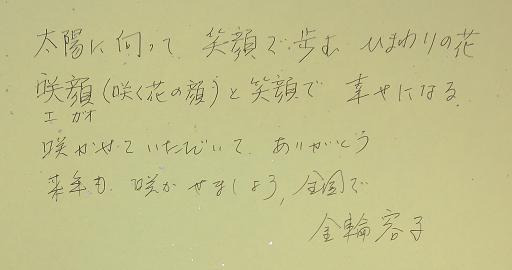 太陽に向って 笑顔で歩む ひまわりの花
咲顔(咲く花の顔)と笑顔で 幸せになる
エ ガオ
咲かせていただいて ありがとう
来年も 咲かせましょう、全国で
金輪容子